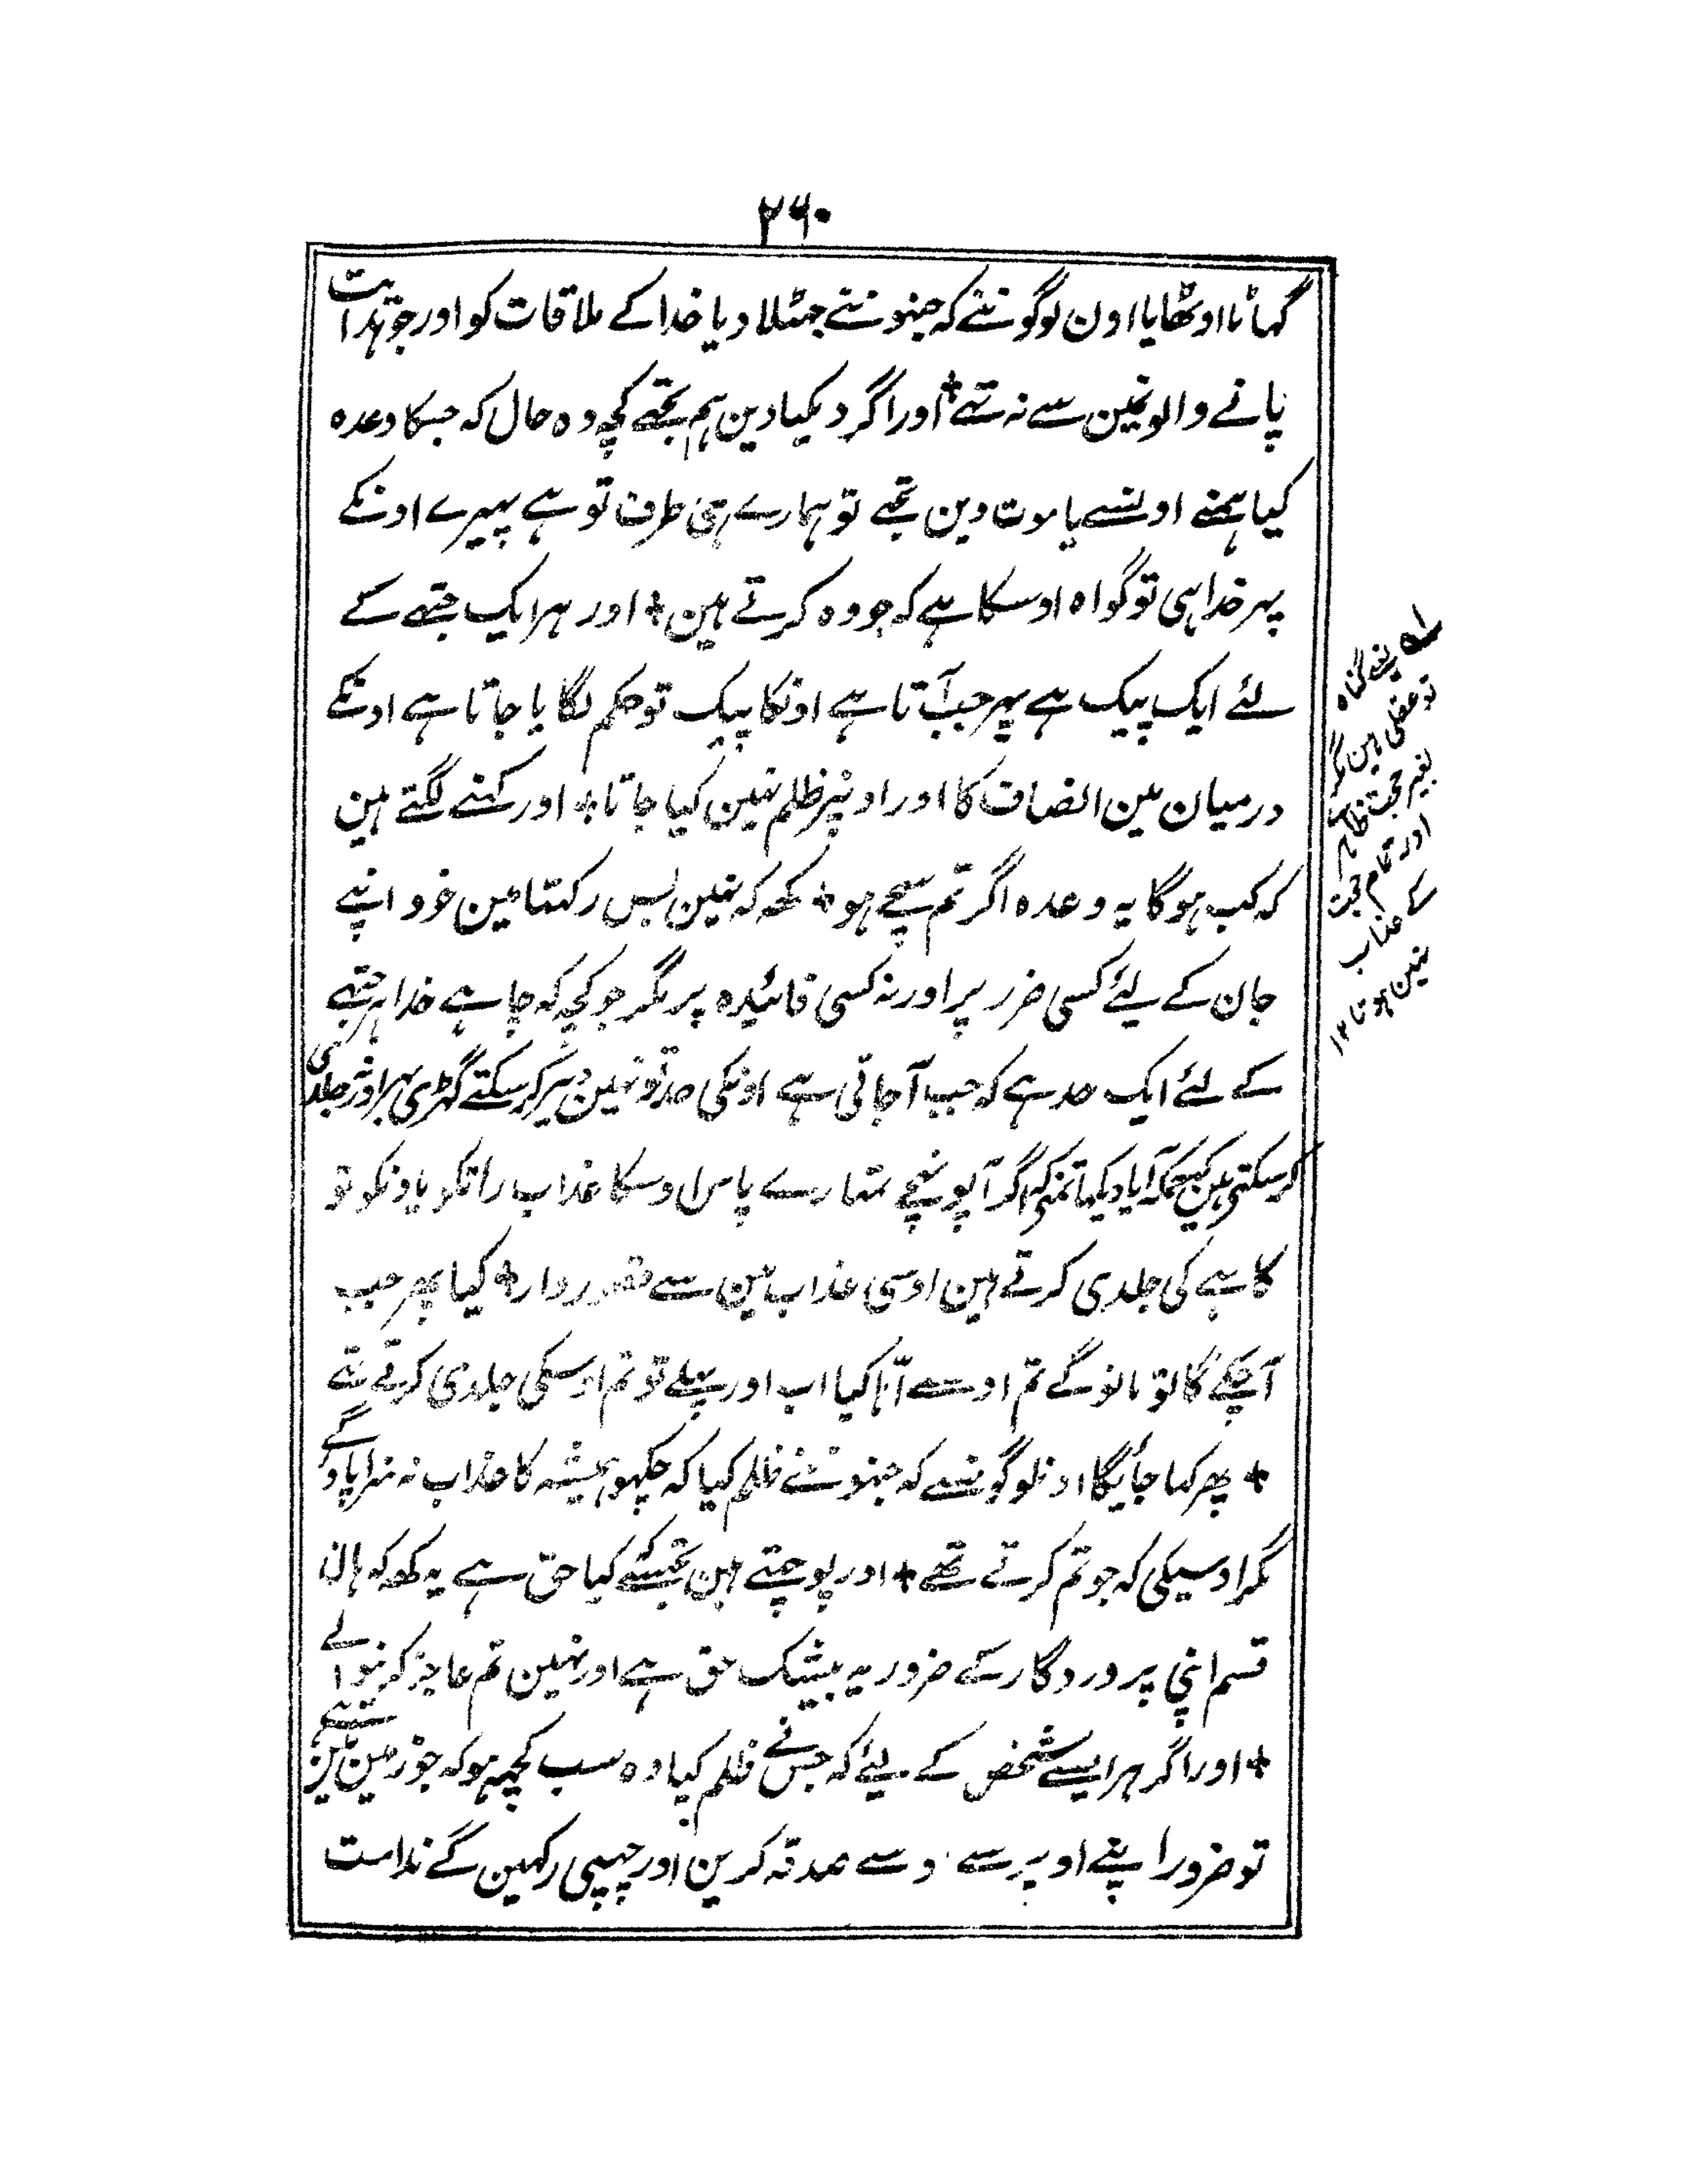 ۲۶۰
گہاٹا اوٹھایا اون لوگونے کہ جنہونے جہٹلا دیا خدا کے ملاقات کو اور جو ہدایت
پانے والونمین سے نہ تہے + اور اگر دیکہا دین ہم تجہے کچہ وہ حال کہ جسکا وعدہ
کیا ہمنے اونسے یا موت دین تجہے تو ہمارے ہی طرف تو ہے پہیرے اونکے
پہر خدا ہی تو گواہ اوسکا ہے کہ جو وہ کرتے ہین + اور ہر ایک جتہے کے
لئے ایک پیک ہے پہر جب آتا ہے اونکا پیک تو حکم لگایا جاتا ہے اونکے
درمیان مین انصاف کا اور اونپر ظلم نہین کیا جاتا + اور کہنے لگتے ہین
کہ کب ہوگا یہ وعدہ اگر تم سچے ہو + کھہ کہ نہین بس رکہتا مین خود اپنے
جان کے لیئے کسی ضرر پر اور نہ کسی فائیدہ پر مگر جو کچہ کہ چاہے خدا ہر جتہے
کے لئے ایک حد ہے کہ جب آجاتی ہے اونکی حد تو نہین دیر کر سکتے گہڑی بہر اور نہ جلدی
کر سکتی ہین کہہ کہ آیا دیکہا تمنے کہ اگر آپہونچے تمہارے پاس اوسکا عذاب راتکو یا دنکو تو
کاہے کی جلدی کرتے ہین اوسی عذاب مین سے قصوروار + کیا پہر جب
آچکے گا تو مانوگے تم اوسے آہا کیا اب اور پہلے تو تم اوسکی جلدی کرتے تہے
+ پہر کہا جائیگا اون لوگونسے کہ جنہونے ظلم کیا کہ چکہو ہمیشہ کا عذاب نہ سزا پاؤگے
مگر اوسیکی کہ جو تم کرتے تھے + اور پوچہتے ہین تجہسے کیا حق ہے یہ کھہ کہ ہان
قسم اپنی پروردگار کے ضرور یہ بیشک حق ہے اور نہین تم عاجز کرنیوالے
+ اور اگر ہر ایسے شخص کے لیئے کہ جس نے ظلم کیا وہ سب کچہہ ہو کہ جو زمین مین ہے
تو ضرور اپنے اوپر سے وسے صدقہ کرین اور چہپی رکہین گے ندامت
لہ یعنے گناہ
تو عقلی ہین مگر
بغیر حجت ظاہر
اور تمام حجت
کے عذاب
نہین ہوتا ۱۲